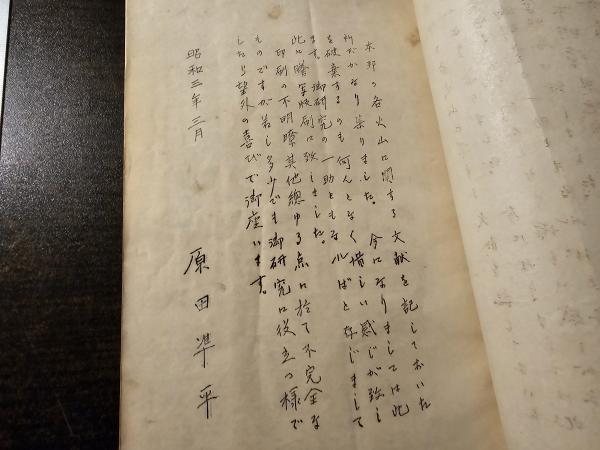 本邦の各火山に関する文献を記しておいた
所だかなり集りました。今になりましては此
を破棄するのも何んとなく惜しい感じが致し
ます。御研究の一助ともならばと存じまして
此に謄写版刷に致しました。
印刷の不明瞭其他總ゆる点に於て不完全な
ものですが若し多少でも御研究に役立つ様で
したら望外の喜びで御座います。
昭和三年三月
原田準平